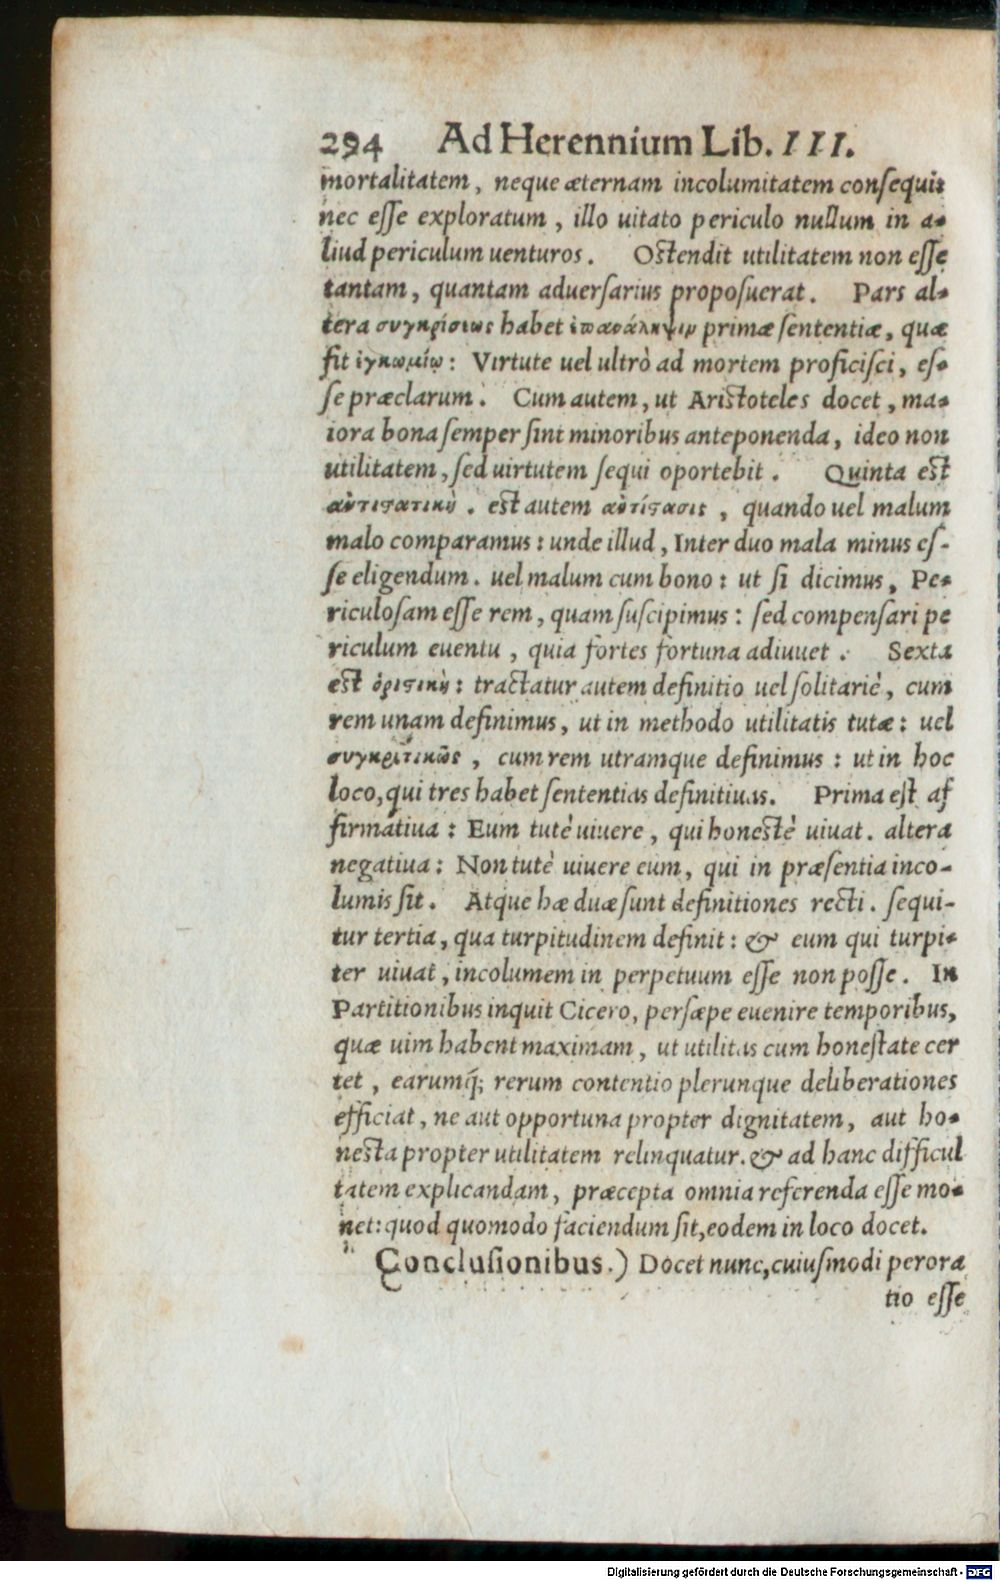 294 Ad Herennium Lib. III.
mortalitatem, neque æternam incolumitatem consequi:
nec esse exploratum, illo uitato periculo nullum in a-
liud periculum uenturos. Ostendit utilitatem non esse
tantam, quantam aduersarius proposuerat. Pars al-
tera συγκρίσεως habet ἐπανάληψιν primæ sententiæ, quæ
fit ἐγκωμίῳ: Virtute uel ultrò ad mortem proficisci, es-
se præclarum. Cum autem, ut Aristoteles docet, ma-
iora bona semper sint minoribus anteponenda, ideo non
utilitatem, sed uirtutem sequi oportebit. Quinta est
ἀντιστατικὴ. est autem ἀντίστασις, quando uel malum
malo comparamus: unde illud, Inter duo mala minus es-
se eligendum. uel malum cum bono: ut si dicimus, Pe-
riculosam esse rem, quam suscipimus: sed compensari pe
riculum euentu, quia fortes fortuna adiuuet. Sexta
est ὁριστικὴ: tractatur autem definitio uel solitariè, cum
rem unam definimus, ut in methodo utilitatis tutæ: uel
συγκριτικῶς, cum rem utramque definimus: ut in hoc
loco, qui tres habet sententias definitiuas. Prima est af
firmatiua: Eum tutè uiuere, qui honestè uiuat. altera
negatiua: Non tutè uiuere eum, qui in præsentia inco-
lumis sit. Atque hæ duæ sunt definitiones recti. sequi-
tur tertia, qua turpitudinem definit: & eum qui turpi-
ter uiuat, incolumem in perpetuum esse non posse. In
Partitionibus inquit Cicero, persæpe euenire temporibus,
quæ uim habent maximam, ut utilitas cum honestate cer
tet, earumq́; rerum contentio plerunque deliberationes
efficiat, ne aut opportuna propter dignitatem, aut ho-
nesta propter utilitatem relinquatur. & ad hanc difficul
tatem explicandam, præcepta omnia referenda esse mo-
net: quod quomodo faciendum sit, eodem in loco docet.
Conclusionibus.) Docet nunc, cuiusmodi perora
tio esse
Digitalisierung gefördert durch die Deutsche Forschungsgemeinschaft - DFG